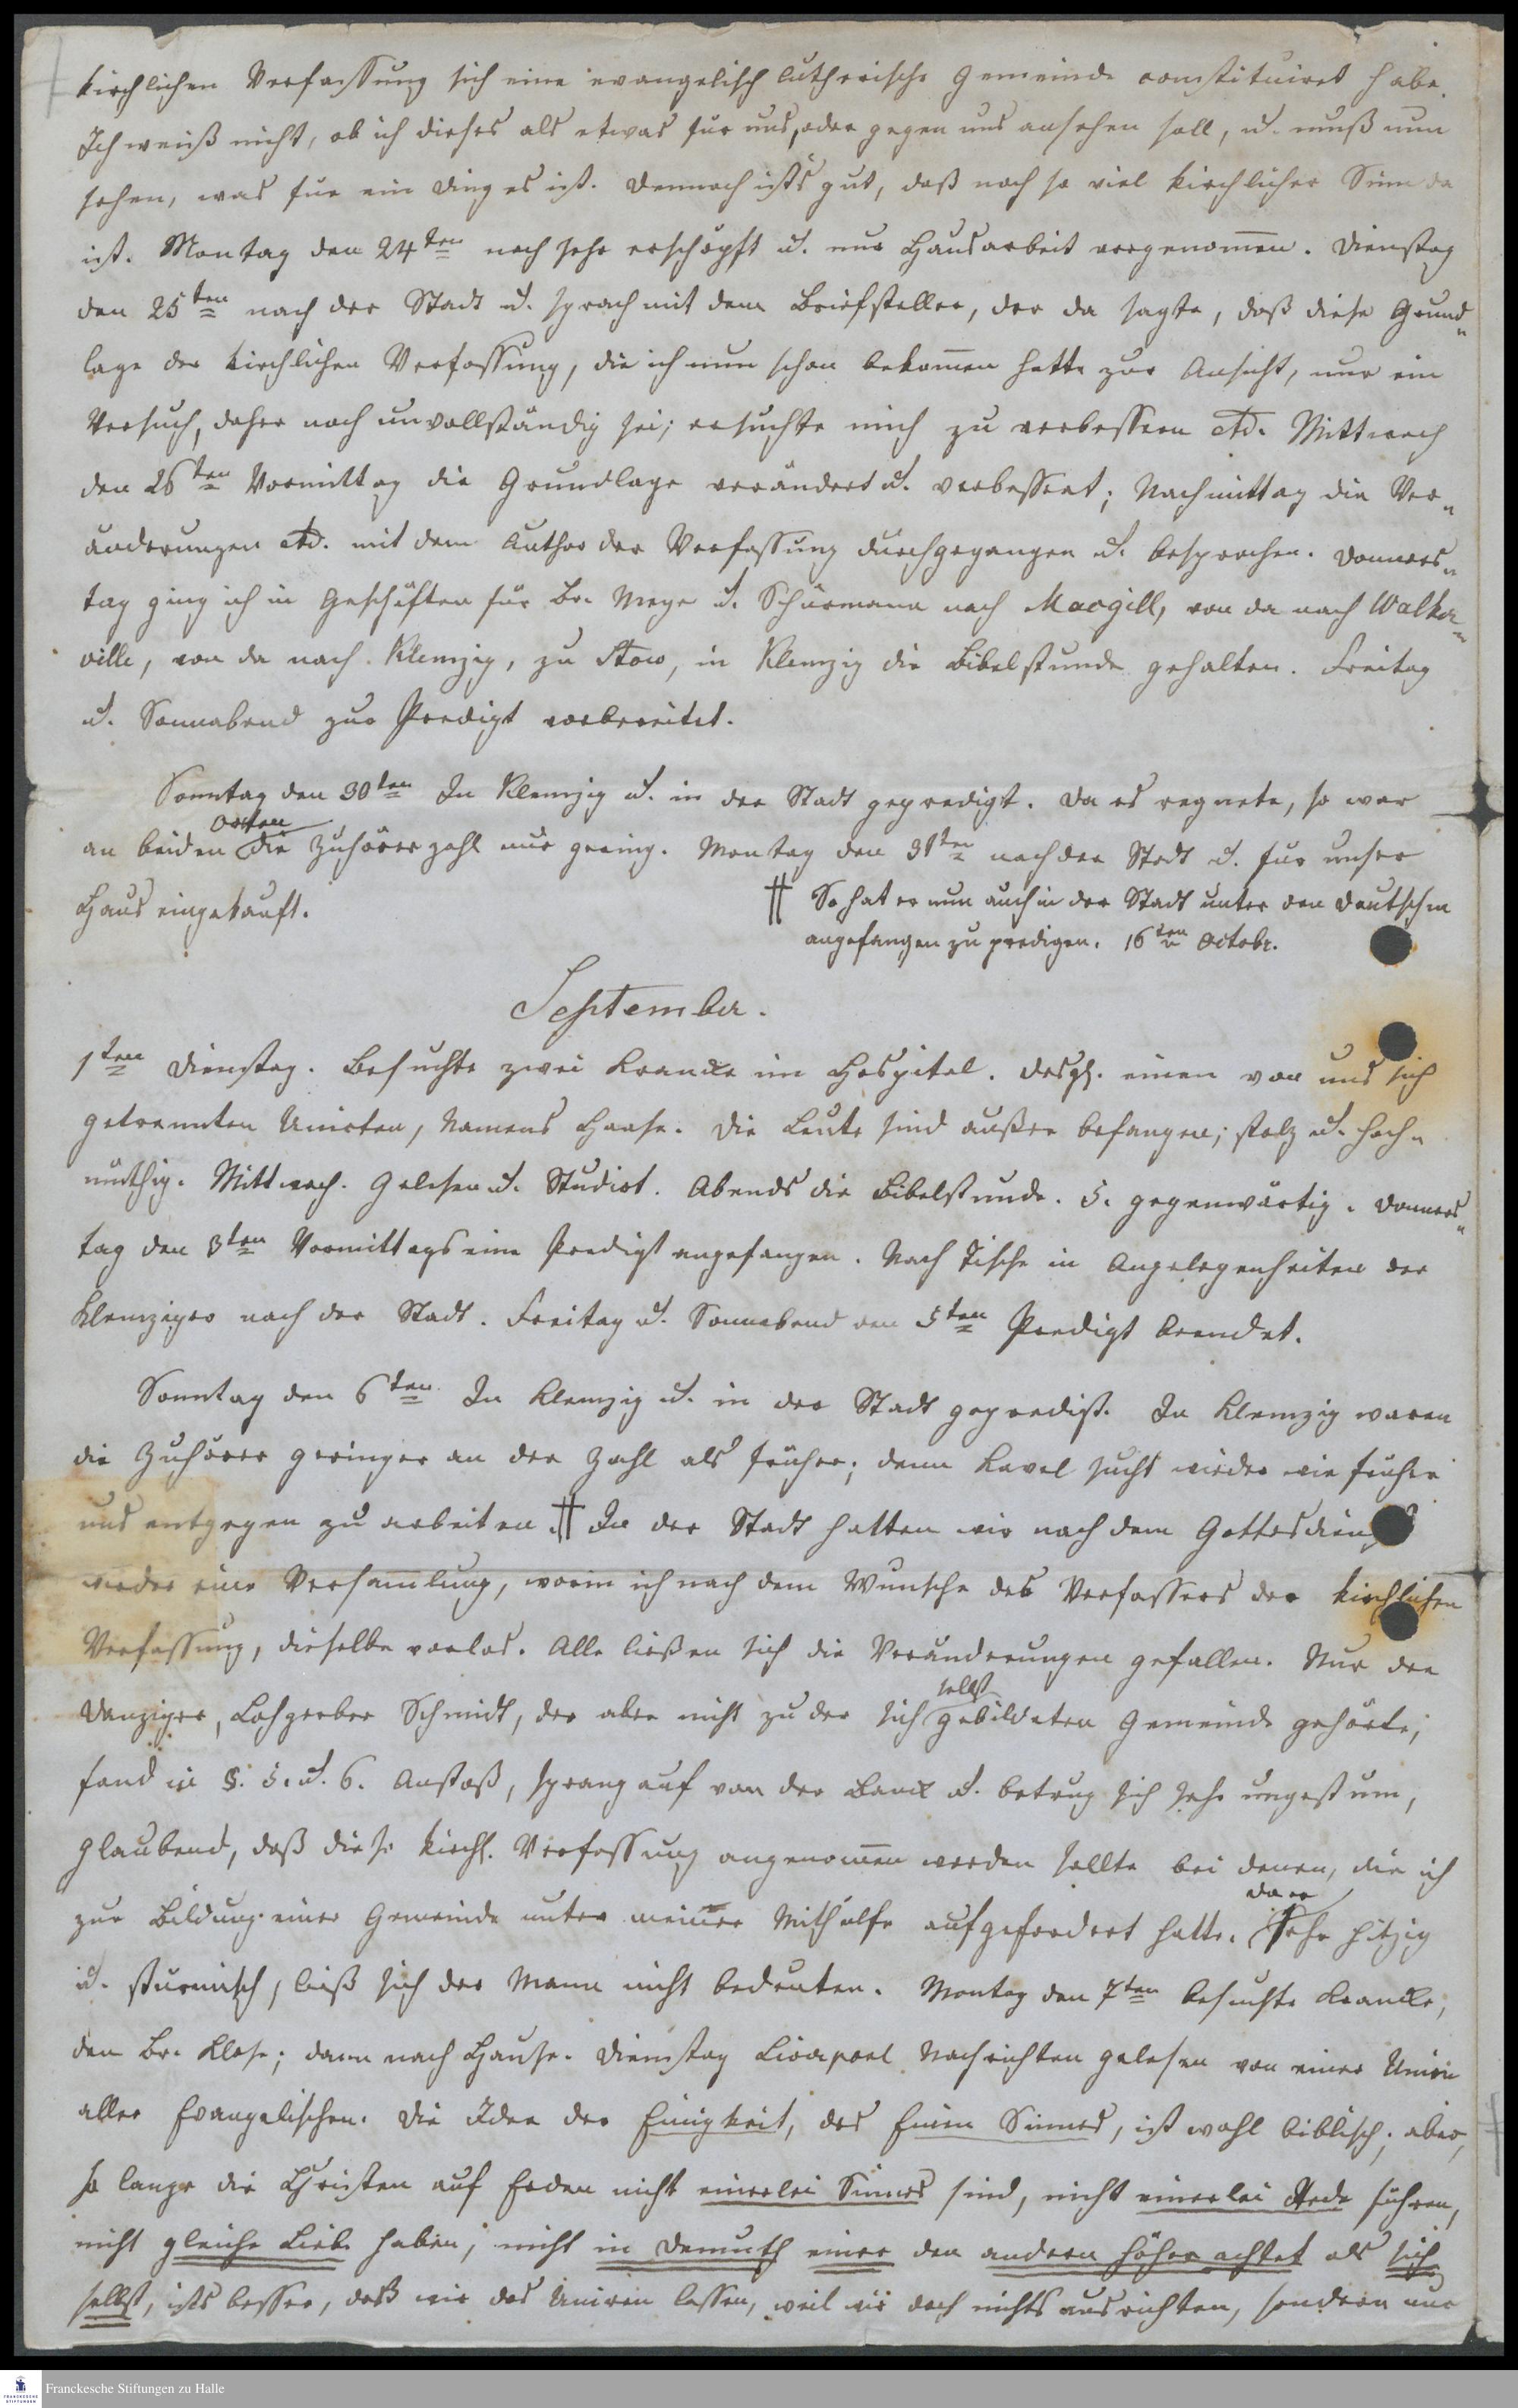 kirchlichen Verfassung sich eine evangelisch lutherische Gemeinde constituiret habe.
Ich weiß nicht, ob ich dieses als etwas fur uns, oder gegen uns ansehen soll, u. muß nun
sehen, was fur ein Ding es ist. Dennoch ists gut, daß noch so viel kirchlicher Sinn da
ist. Montag den 24ten noch sehr erschöpft u. nur Hausarbeit vorgenom̅en. Dienstag
den 25ten nach der Stadt u. sprach mit dem Briefsteller, der da sagte, daß diese Grund„
lage der kirchlichen Verfassung, die ich nun schon bekom̅en hatte zur Ansicht, nur ein
Versuch, daher noch unvollständig sei; ersuchte mich zu verbessern etc. Mittwoch
den 26ten Vormittag die Grundlage verändert u. verbessert; Nachmittag die Ver„
änderungen etc. mit dem Author der Verfassung durchgegangen u. besprochen. Donners„
tag ging ich in Geschäften für Br. Meyer u. Schürmann nach Macgill, von da nach Walker„
ville, von da nach Klemzig, zu Stow, in Klemzig die Bibelstunde gehalten. Freitag
u. Sonnabend zur Predigt vorbereitet.
Sonntag den 30ten In Klemzig u. in der Stadt gepredigt. Da es regnete, so war
Orten
an beiden die Zuhörerzahl nur gering. Montag den 31ten nach der Stadt u. fur unser
Haus eingekauft.
‡ So hat er nun auch in der Stadt unter den Deutschen
angefangen zu predigen. 16ten Octobr.
September.
1ten Dienstag. Besuchte zwei Kranke im Hospital. Desgl. einen von uns sich
getrennten Unirten, Namens Haase. Die Leute sind außer befangen; stolz u. hoch„
müthig. Mittwoch. Gelesen u. Studirt. Abends die Bibelstunde. 5. gegenwärtig. Donners„
tag den 3ten Vormittags eine Predigt angefangen. Nach Tische in Angelegenheiten der
Klemziger nach der Stadt. Freitag u. Sonnabend den 5ten Predigt beendet.
Sonntag den 6ten In Klemzig u. in der Stadt gepredigt. In Klemzig waren
die Zuhörer geringer an der Zahl als früher; denn Kavel sucht wieder wie früher
uns entgegen zu arbeiten. ‡ In der Stadt hatten wir nach dem Gottesdienst
wieder eine Versam̅lung, worin ich nach dem Wunsche des Verfassers der kirchlichen
Verfassung, dieselbe vorlas. Alle ließen sich die Veränderungen gefallen. Nur der
selbst
Danziger, Lohgerber Schmidt, der aber nicht zu der sich gebildeten Gemeinde gehörte,
fand in §. 5. u. 6. Anstoß, sprang auf von der Bank u. betrug sich sehr ungestum,
glaubend, daß diese kirchl. Verfassung angenom̅en werden sollte bei denen, die ich
da er
zur Bildung einer Gemeinde unter meiner Mithülfe aufgefordert hatte. Sehr hitzig
u. sturmisch, ließ sich der Mann nicht bedeuten. Montag den 7ten besuchte Kranke,
den Br. Klose; dann nach Hause. Dienstag Liverpool Nachrichten gelesen von einer Union
aller Evangelischen. Die Idee der Einigkeit, des Einen Sinnes, ist wohl biblisch; aber,
so lange die Christen auf Erden nicht einerlei Sinnes sind, nicht einerlei Rede führen,
nicht gleiche Liebe haben, nicht in Demuth einer den andern höher achtet als sich
selbst, ists besser, daß wir das Uniren lassen, weil wir doch nichts ausrichten, sondern nur
Franckesche Stiftungen zu Halle